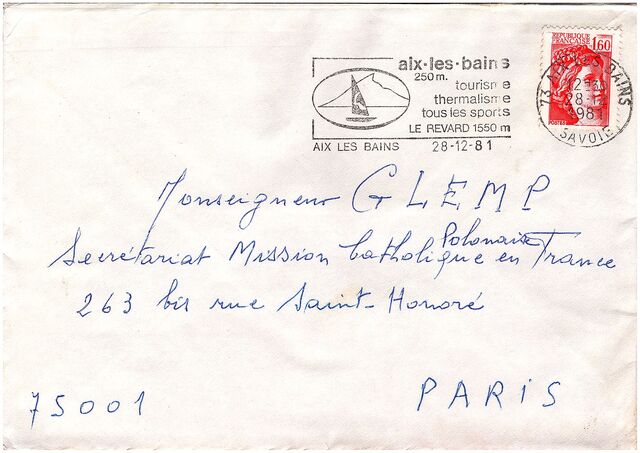 aix-les-bains
250 m.
tourisme
thermalisme
tous les sports
LE REVARD 1550 m
AIX LES BAINS 28-12-81
REPUBLIQUE
FRANCAISE
1,60
POSTES
73 AIX-LES-BAINS
28-12
1981
SAVOIE
Monseigneur GLEMP
Polonaise
Secrétariat Mission Catholique en France
263 bis rue Saint-Honoré
75001 PARIS